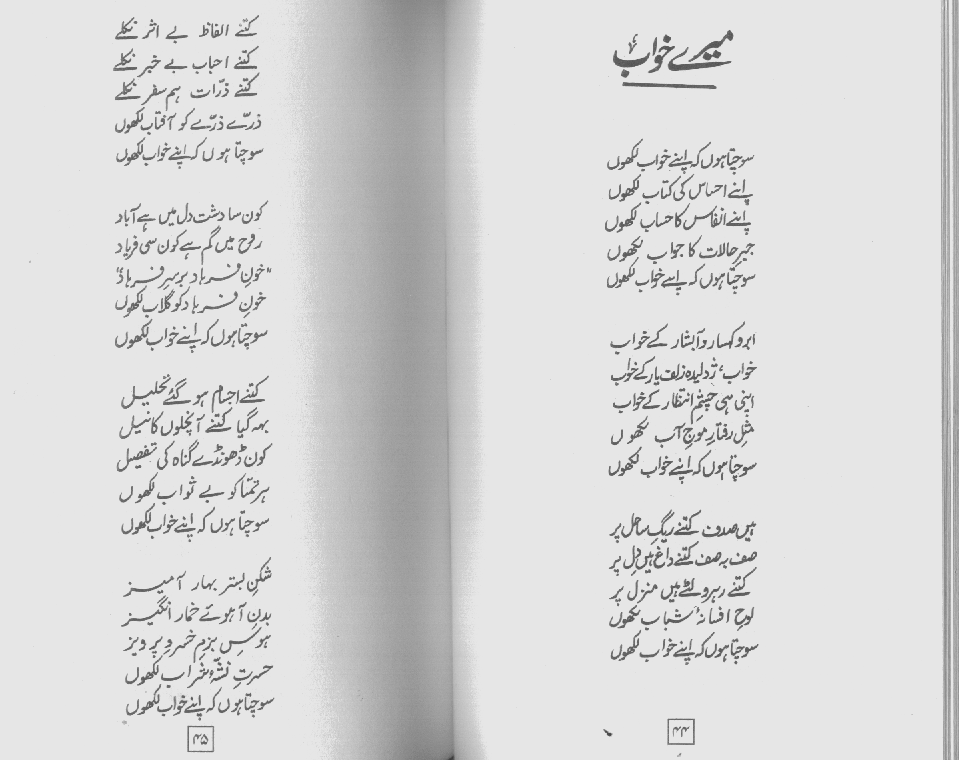 میرے خواب
سوچتا ہوں کہ اپنے خواب لکھوں
اپنے احساس کی کتاب لکھوں
اپنے انفاس کا حساب لکھوں
جبرِ حالات کا جواب لکھوں
سوچتا ہوں کہ اپنے خواب لکھوں
ابر و کہسار و آبشار کے خواب
خواب، ژولیدہ زلفِ یار کے خواب
اپنی ہی چشمِ انتظار کے خواب
مثلِ رفتارِ موجِ آب لکھوں
سوچتا ہوں کہ اپنے خواب لکھوں
ہیں صدف کتنے ریگِ ساحل پر
صف بہ صف کتنے داغ ہیں دل پر
کتنے رہرو لٹے ہیں منزل پر
لوحِ افسانۂ شباب لکھوں
سوچتا ہوں کہ اپنے خواب لکھوں
۴۴
کتنے الفاظ بے اثر نکلے
کتنے احباب بے خبر نکلے
کتنے ذرّات ہم سفر نکلے
ذرّے ذرّے کو آفتاب لکھوں
سوچتا ہوں کہ اپنے خواب لکھوں
کون سا دشت دل میں ہے آباد
روح میں گم ہے کون سی فریاد
"خونِ فرہاد برسرِ فرہاد"
خونِ فرہاد کو گلاب لکھوں
سوچتا ہوں کہ اپنے خواب لکھوں
کتنے اجسام ہو گئے تحلیل
بہہ گیا کتنے آنچلوں کا نیل
کون ڈھونڈے گناہ کی تفصیل
ہر تمنّا کو بے ثواب لکھوں
سوچتا ہوں کہ اپنے خواب لکھوں
شکنِ بسترِ بہار آمیز
بدنِ آہوئے خمار انگیز
ہوسِ بزمِ خسرو پرویز
حسرتِ نشّۂ شراب لکھوں
سوچتا ہوں کہ اپنے خواب لکھوں
۴۵